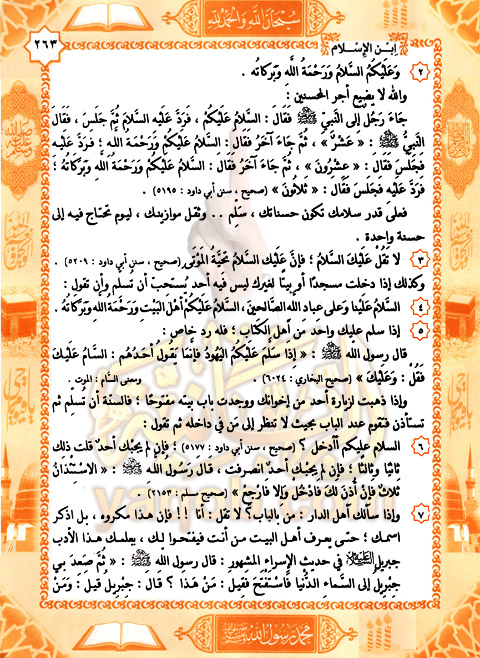 سبحان الله والحمد لله
٢٦٣
ابن الإسلام
٢ وَعَلَيكُمُ السَّلامُ وَرَحْمَةُ اللَّه وَبَرَكاتُه .
والله لا يضيع أجر المحسنين :
جَاءَ رَجُل إلى النَّبيِّ ﷺ فَقالَ : السَّلامُ عَلَيكُمْ ، فَرَدَّ عَلَيه السلامَ ثُمَّ جَلسَ ، فَقَالَ
النَّبيُّ ﷺ : « عَشْرٌ » ، ثُمَّ جَاءَ آخَرُ فَقَالَ : السَّلامُ عَلَيكُمْ وَرَحْمَةُ اللَّه ؛ فَرَدَّ عَلَيه
فَجلسَ فَقالَ : « عِشْرُونَ » ، ثُمَّ جَاءَ آخَرُ فَقالَ : السَّلامُ عَلَيكُمْ وَرَحْمَةُ اللَّهِ وَبَرَكاتُهُ ؛
فَرَدَّ عَلَيه فَجلسَ فَقَالَ : « ثَلاثُونَ » (صحيح ، سنن أبي داود : ٥١٩٥) .
فعلى قدر سلامك تكون حسناتك ، سَلِّم .. وثقل موازينك ، ليوم تحتاج فيه إلى
حسنة واحدة .
٣ لا تَقُلْ عَلَيكَ السَّلامُ ؛ فإنَّ عَلَيكَ السلامُ تَحيَّةُ المَوْتَى (صحيح ، سنن أبي داود : ٥٢٠٩) .
وكذلك إذا دخلت مسجدًا أو بيتًا لغيرك ليس فيه أحد يُستحبّ أن تسلم وأن تقول :
٤ السلامُ عَلَينا وعَلى عِبادِ اللَّه الصَّالحينَ ، السَّلامُ عَلَيكُمْ أَهْلَ البَيْتِ وَرَحْمَةُ اللهِ وَبَرَكاتُهُ .
٥ إذا سلم عليك واحد من أهل الكتاب ؛ فله رد خاص :
قال رسول الله ﷺ : « إِذَا سَلَّمَ عَلَيْكُمُ اليَهُودُ فَإِنَّمَا يَقُولُ أَحَدُهُم : السَّامُ عَلَيكَ
فَقُلْ : وَعَلَيكَ » (صحيح البخاري : ٦٠٢٤) . ومعنى السَّام : الموت .
وإذا ذهبت لزيارة أحد من إخوانك ووجدت باب بيته مفتوحًا ؛ فالسنة أن تُسلم ثم
تستأذن فتقوم عند الباب بحيث لا تنظر إلى مَن في داخله ثم تقول :
٦ السلام عليكم أأدخل ؟ (صحيح ، سنن أبي داود : ٥١٧٧) ؛ فإن لم يجبك أحد قلت ذلك
ثانيًا وثالثًا ؛ فإن لم يجبك أحد انصرفت ، قال رَسُول الله ﷺ : « الاسْتئذَانُ
ثَلاثٌ فإنْ أُذنَ لَكَ فَادْخُل وَإلا فارْجِعْ » (صحيح مسلم : ٢١٥٣) .
٧ وإذا سألك أهل الدار : مَن بالباب؟ لا تقل : أنا !! فإن هـذا مكروه ، بل اذكر
اسمك ؛ حتى يعرف أهل البيت من أنت فيفتحوا لك ، يعلمك هذا الأدب
جبريلُ في حديث الإسراء المشهور : قال رسول الله ﷺ : « ثُمَّ صَعدَ بي
جِبْريلُ إلى السَّماءِ الدُّنْيا فَاسْتَفْتَحَ فَقيلَ : مَنْ هَذا ؟ قالَ : جِبْريل قيلَ : وَمَنْ
محمد رسول الله